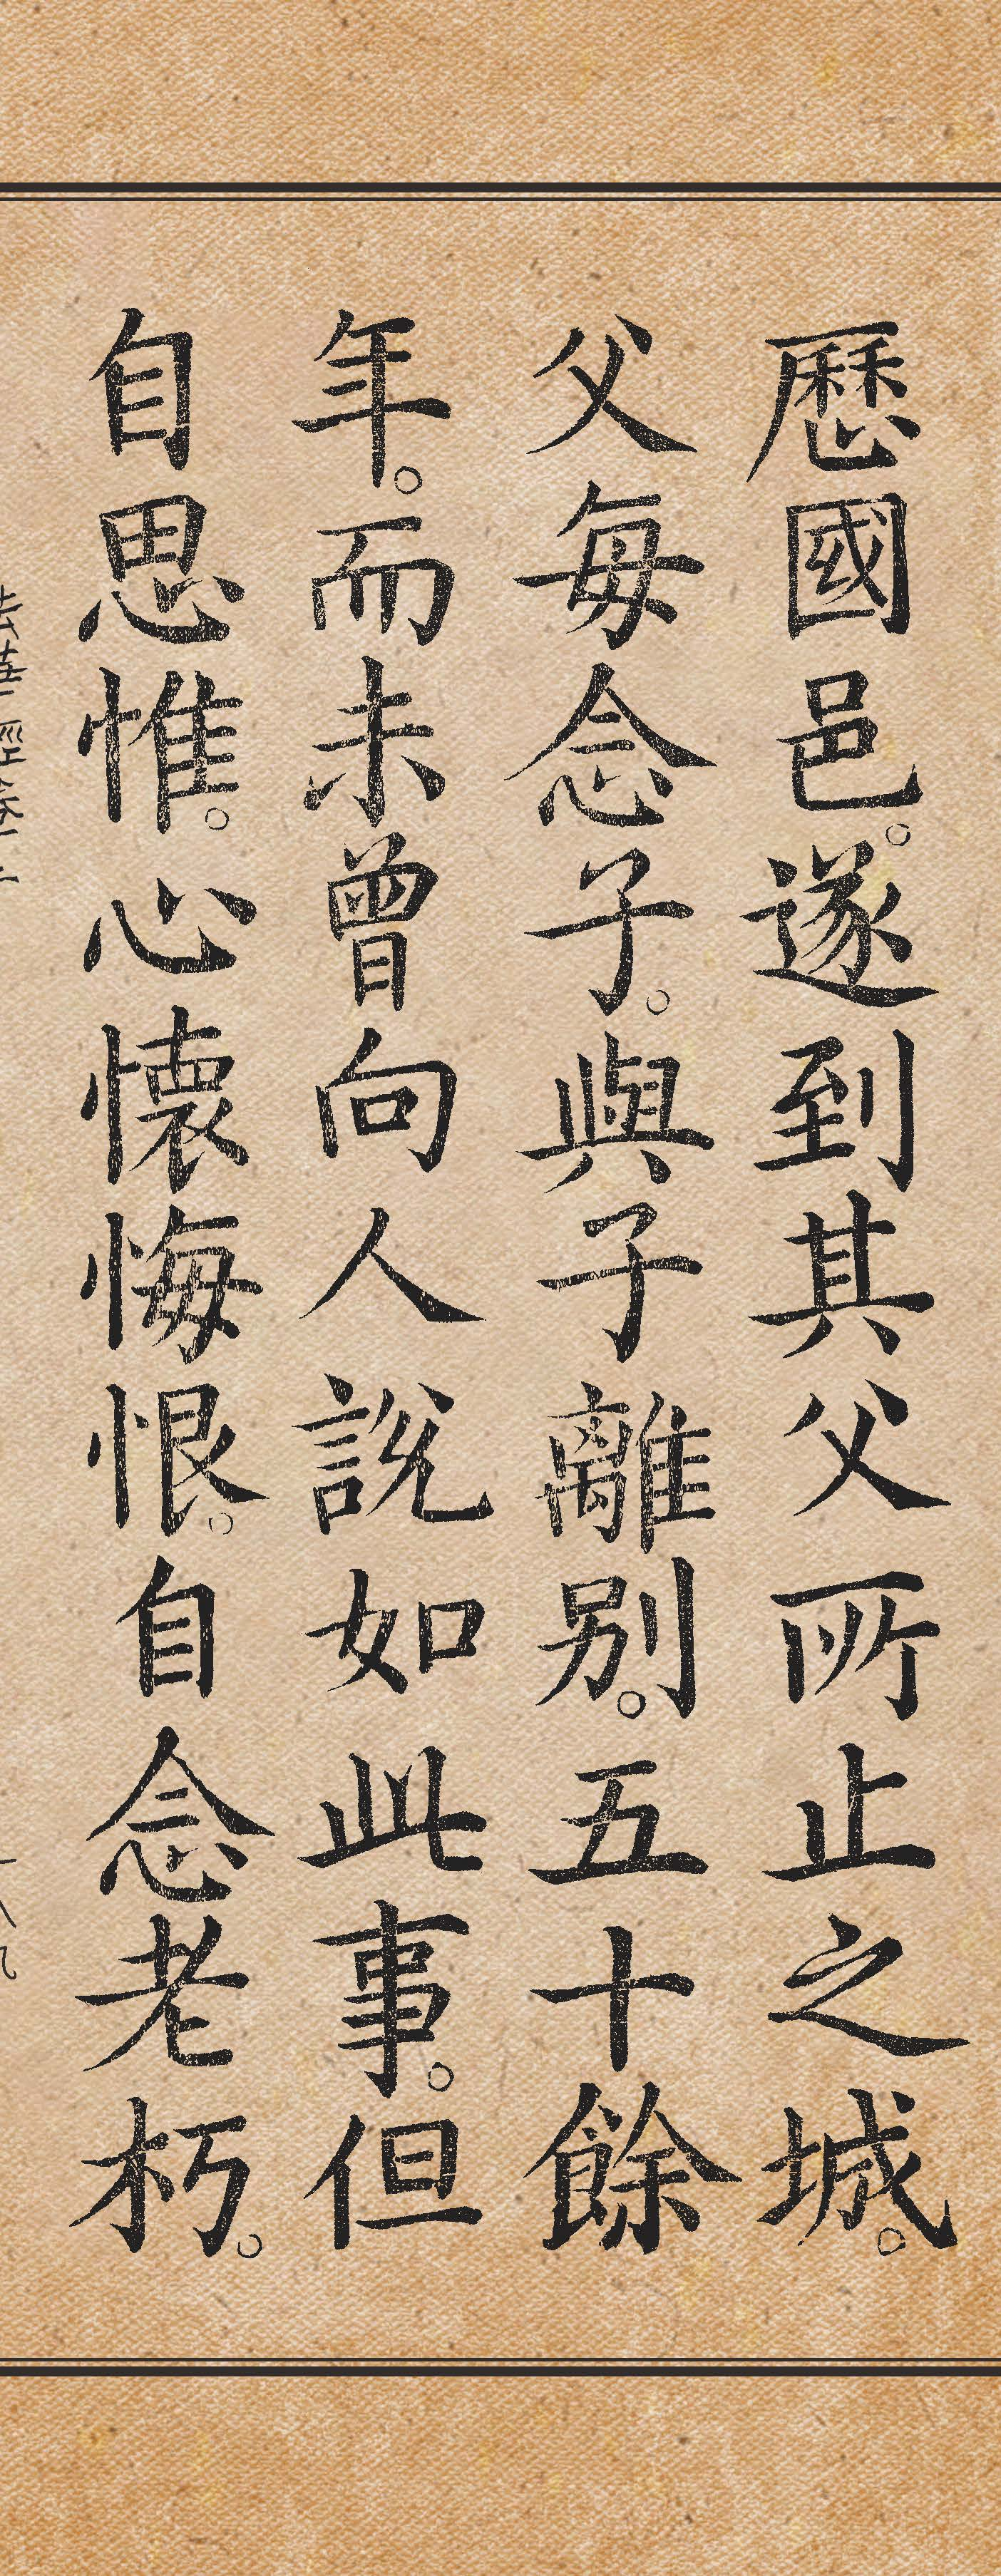 歷國邑。遂到其父所止之城。
父每念子。與子離別。五十餘
年。而未曾向人說如此事。但
自思惟。心懷悔恨。自念老朽。